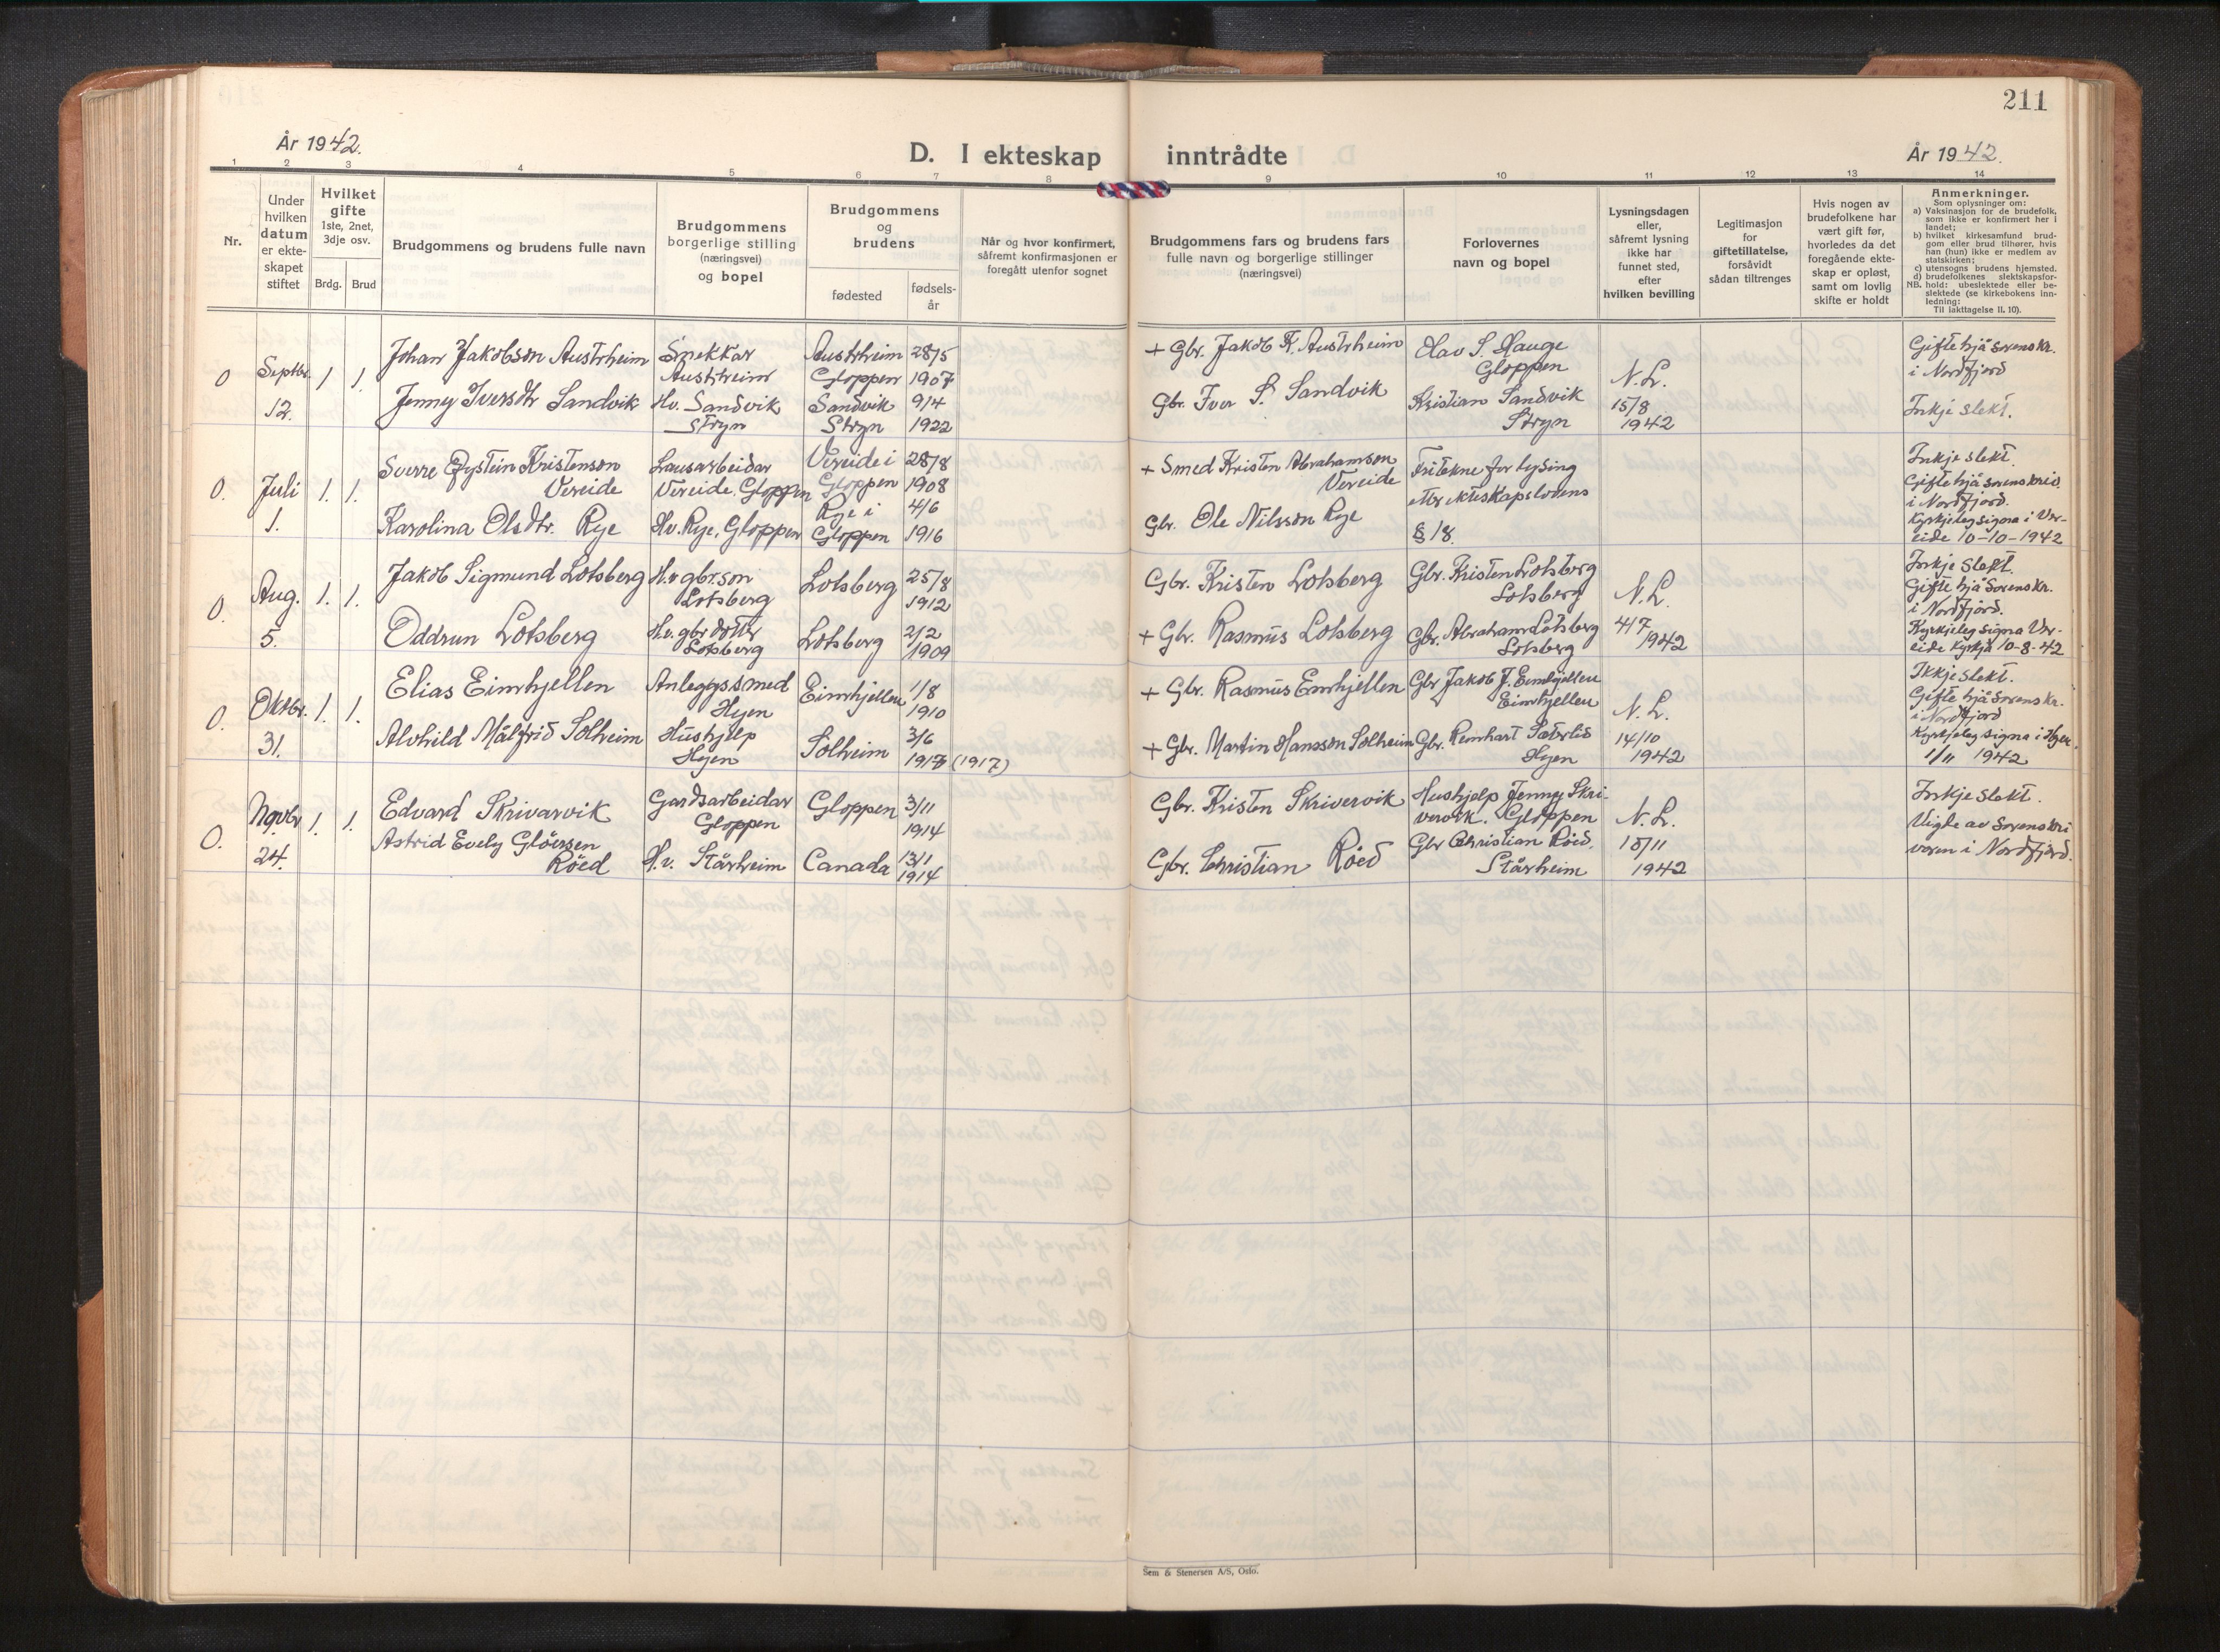 211
År 1942.
D. I ekteskap inntrådte
År 1942.
1 2 3 4 5 6 7 8 9 10 11 12 13 14
Nr.
Under
hvilken
datum
er ekte-
skapet
stiftet
Hvilket
gifte
1ste, 2net,
3dje osv.
Brdg. Brud
Brudgommens og brudens fulle navn
Brudgommens
borgerlige stilling
(næringsvei)
og bopel
Brudgommens
og
brudens
fødested
fødsels-
år
Når og hvor konfirmert,
såfremt konfirmasjonen er
foregått utenfor sognet
Brudgommens fars og brudens fars
fulle navn og borgerlige stillinger
(næringsvei)
Forlovernes
navn og bopel
Lysningsdagen
eller,
såfremt lysning
ikke har
funnet sted,
efter
hvilken bevilling
Legitimasjon
for
giftetillatelse,
forsåvidt
sådan tiltrenges
Hvis nogen av
brudefolkene har
vært gift før,
hvorledes da det
foregående ekte-
skap er opløst,
samt om lovlig
skifte er holdt
Anmerkninger.
Som oplysninger om:
a) Vaksinasjon for de brudefolk,
som ikke er konfirmert her i
landet;
b) hvilket kirkesamfund brud-
gom eller brud tilhører, hvis
han (hun) ikke er medlem av
statskirken;
c) utensogns brudens hjemsted.
d) brudefolkenes slektskapsfor-
NB. hold: ubeslektede eller be-
slektede (se kirkebokens inn-
ledning:
Til iakttagelse II, 10).
0
Septbr.
12.
1 1.
Johan Jakobson Austrheim
Jenney Iversdtr Sandvik
Snekkar
Austrheim
Hv. Sandvik
Stryn
Austrheim
Gloppen
Sandvik
Stryn
28/5
1907
9/4
1922
+ Gbr. Jakob K. Austrheim
Gbr. Iver S. Sandvik
Olav S. Hauge
Gloppen
Kristian Sandvik
Stryn
N.L.
15/8
1942
Gifte hjå sorenskr.
i Nordfjord
Inkje slekt.
0.
Juli
1.
1. 1.
Sverre Øystein Kristenson
Vereide
Karolina Olsdtr. Rye
Lausarbeidar
Vereide, Gloppen
Hv. Rye, Gloppen
Vereide i
Gloppen
Rye i
Gloppen
28/8
1908
4/6
1916
+ Smed Kristen Abrahamson
Vereide
Gbr. Ole Nilsson Rye
Fritekne for lysing
etter ekteskapslovens
§ 18.
Inkje slekt.
Gifte hjå sorenskriv.
i Nordfjord.
Kyrkjeleg signa i Ver-
eide 10-10-1942
0.
Aug.
5.
1. 1.
Jakob Sigmund Lotsberg
Oddrun Lotsberg
H.v gbr.son
Lotsberg
H.v. gbr dotter
Lotsberg
Lotsberg
Lotsberg
25/8
1912
2/2
1909
Gbr. Kristen Lotsberg
+ Gbr. Rasmus Lotsberg
Gbr. Kristen Lotsberg
Lotsberg
Gbr. Abraham Lotsberg
Lotsberg
N.L.
4/7
1942
Inkje slekt.
Gifte hjå Sorenskr.
i Nordfjord.
Kyrkjeleg signa Ver-
eide kyrkja 10-8-42
0.
Oktbr.
31.
1. 1.
Elias Eimhjellen
Alvhild Målfrid Solheim
Anleggssmed
Hyen
Hushjelp
Hyen
Eimhjellen
Solheim
1/8
1910
3/6
(1917)
+ Gbr. Rasmus Eimhjellen
+ Gbr. Martin Hansson Solheim
Gbr Jakob J. Eimhjellen
Eimhjellen
Gbr. Reinhart Sæbrlid
Hyen
N.L.
14/10
1942
Ikkje slekt.
Gifte hjå Sorenskr.
i Nordfjord
Kyrkjeleg signa i Hyen
1/11 1942
0.
Novbr
24.
1. 1.
Edvard Skrivarvik
Astrid Evely Gløersen
Røed
Gardsarbeidar
Gloppen
H.v. Stårheim
Gloppen
Canada
3/11
1914
13/1
1914
Gbr. Kristen Skrivervik
Gbr. Christian Røed
Hushjelp Jenney Skri-
vervik. Gloppen
Gbr Christian Røed.
Stårheim
N.L.
10/11
1942
Inkje slekt.
Vigde av Sorenskri
varen i Nordfjord.
Sem & Stenersen A/S, Oslo.